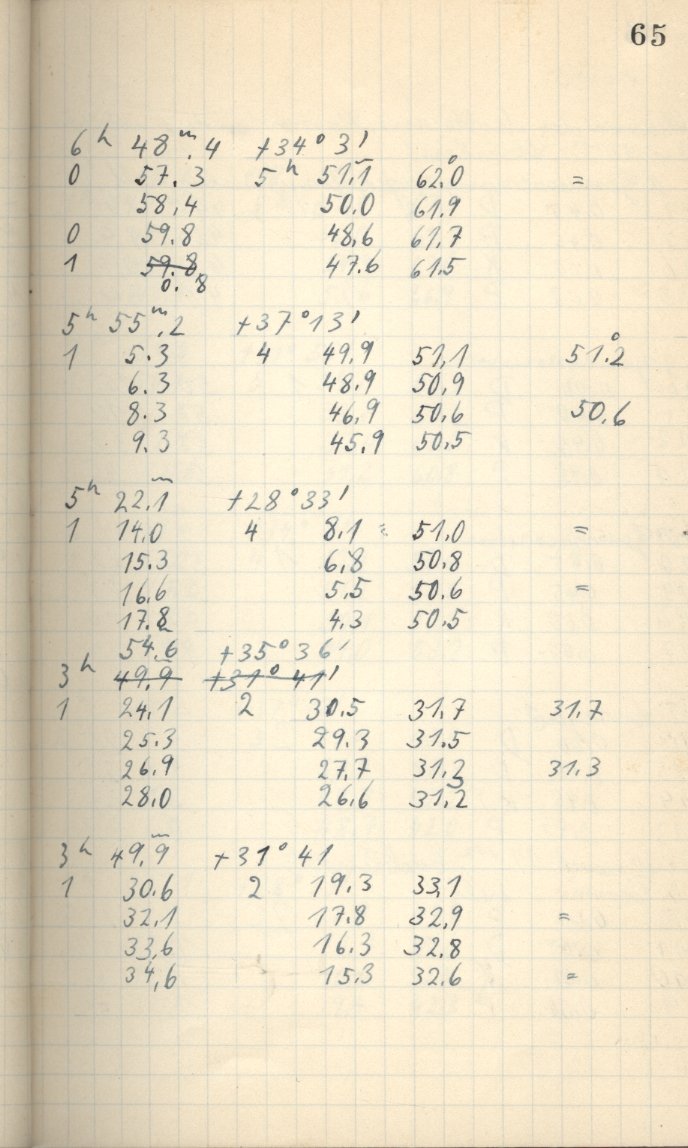 65
6ʰ 48ᵐ.4 +34°3'
0 57.3 5ʰ 51ᵐ.1 62°.0 =
58.4 50.0 61.9
0 59.8 48.6 61.7
1 59.8 47.6 61.5
0.8
5ʰ 55ᵐ.2 +37°13'
1 5.3 4 49.9 51.1 51°.2
6.3 48.9 50.9
8.3 46.9 50.6 50.6
9.3 45.9 50.5
5ʰ 22ᵐ.1 +28°33'
1 14.0 4 8.1 = 51.0 =
15.3 6.8 50.8
16.6 5.5 50.6 =
17.8 4.3 50.5
54.6 +35°36'
3ʰ 49ᵐ.9 +31°41'
1 24.1 2 30.5 31.7 31.7
25.3 29.3 31.5
26.9 27.7 31.3 31.3
28.0 26.6 31.2
3ʰ 49ᵐ.9 +31°41
1 30.6 2 19.3 33.1
32.1 17.8 32.9 =
33.6 16.3 32.8
34.6 15.3 32.6 =